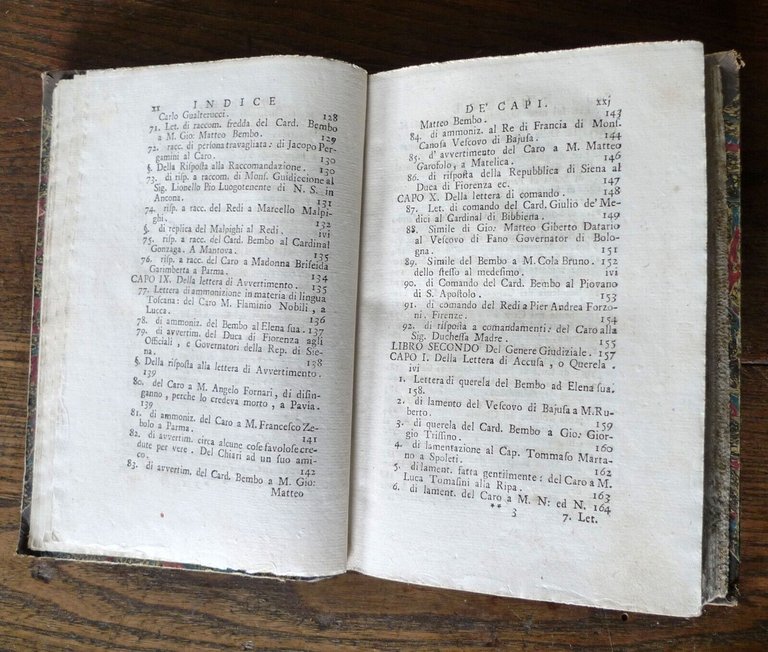 xx INDICE
Carlo Gualterucci. 128
71. Let. di raccom. fredda del Card. Bembo
a M. Gio: Matteo Bembo. 129
72. racc. di persona travagliata: di Jacopo Per-
gamini al Caro. 130
§. Della Risposta alla Raccomandazione. 130
73. di risp. a raccom. di Mons. Guidiccione al
Sig. Lionello Pio Luogotenente di N. S. in
Ancona. 131
74. risp. a racc. del Redi a Marcello Malpi-
ghi. 132
§. di replica del Malpighi al Redi. ivi
75. risp. a racc. del Card. Bembo al Cardinal
Gonzaga. A Mantova. 135
76. risp. a racc. del Caro a Madonna Briseida
Garimberta a Parma. 134
CAPO IX. Della lettera di Avvertimento. 135
77. Lettera di ammonizione in materia di lingua
Toscana: del Caro M. Flaminio Nobili, a
Lucca. 136
78. di ammoniz. del Bembo al Elena sua. 137
79. di avvertim. del Duca di Fiorenza agli
Officiali, e Governatori della Rep. di Sie-
na. 138
§. Della risposta alla lettera di Avvertimento.
139
80. del Caro a M. Angelo Fornari, di disin-
ganno, perche lo credeva morto, a Pavia.
139
81. di ammoniz. del Caro a M. Francesco Ze-
bolo a Parma. 141
82. di avvertim. circa alcune cose favolose cre-
dute per vere. Del Chiari ad un suo ami-
co. 142
83. di avvertim. del Card. Bembo a M. Gio:
Matteo
DE' CAPI. xxj
Matteo Bembo. 143
84. di ammoniz. al Re di Francia di Mons.
Canosa Vescovo di Bajusa. 144
85. d' avvertimento del Caro a M. Matteo
Garofolo, a Matelica. 146
86. di risposta della Repubblica di Siena al
Duca di Fiorenza ec. 147
CAPO X. Della lettera di comando. 148
87. Let. di comando del Card. Giulio de' Me-
dici al Cardinal di Bibbiena. 149
88. Simile di Gio: Matteo Giberto Datario
al Vescovo di Fano Governator di Bolo-
gna. 151
89. Simile del Bembo a M. Cola Bruno. 152
dello stesso al medesimo. ivi
90. di Comando del Card. Bembo al Piovano
di S. Apostolo. 153
91. di comando del Redi a Pier Andrea Forzo-
ni. Firenze. 154
92. di risposta a comandamenti: del Caro alla
Sig. Duchessa Madre. 155
LIBRO SECONDO Del Genere Giudiziale. 157
CAPO I. Della Lettera di Accusa, o Querela.
ivi
1. Lettera di querela del Bembo ad Elena sua.
158.
2. di lamento del Vescovo di Bajusa a M. Ru-
berto. 159
3. di querela del Card. Bembo a Gio: Gior-
gio Trissino. 160
4. di lamentazione al Cap. Tommaso Marta-
no a Spoleti. 162
5. di lament. fatta gentilmente: del Caro a M.
Luca Tomasini alla Ripa. 163
6. di lament. del Caro a M. N: ed N. 164
** 3 7. Let.